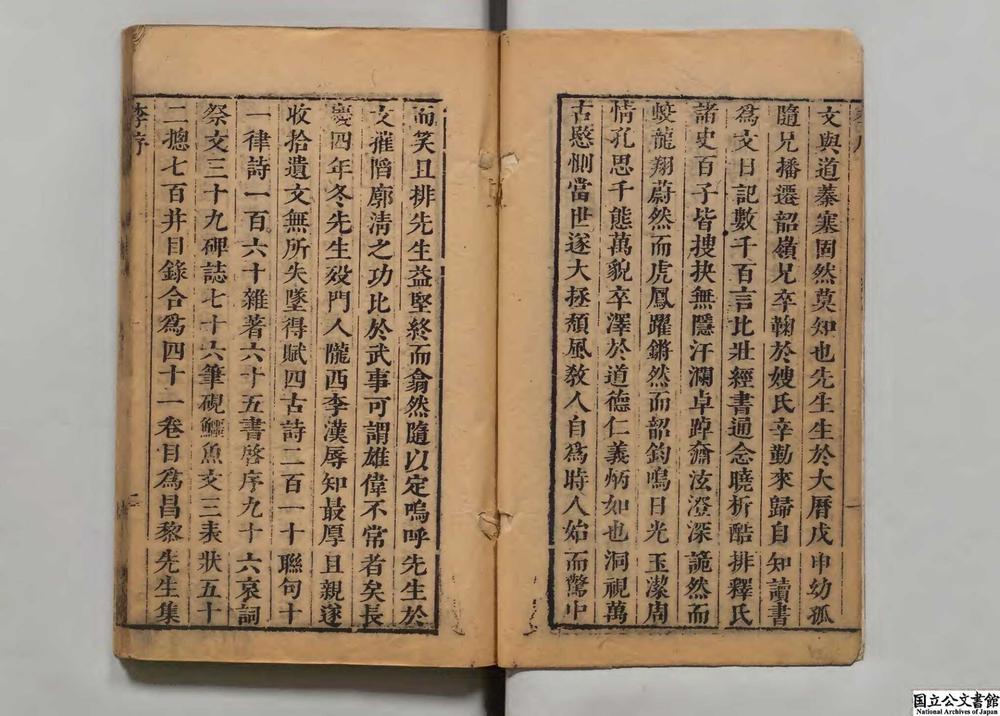 文與道蓁塞固然莫知也先生生於大曆戊申幼孤
隨兄播遷韶嶺兄卒鞠於嫂氏辛勤來歸自知讀書
爲文日記數千百言比壯經書通念曉析酷排釋氏
諸史百子皆搜抉無隱汗瀾卓踔奫泫澄深詭然而
蛟龍翔蔚然而虎鳳躍鏘然而韶鈞鳴日光玉潔周
情孔思千態萬貌卒澤於道德仁義炳如也洞視萬
古愍惻當世遂大拯頹風敎人自爲時人始而驚中
而笑且排先生益堅終而翕然隨以定嗚呼先生於
文摧䧟廓清之功比於武事可謂雄偉不常者矣長
慶四年冬先生歿門人隴西李漢辱知最厚且親遂
收拾遺文無所失墜得賦四古詩二百一十聯句十
一律詩一百六十雜著六十五書啓序九十六哀詞
祭文三十九碑誌七十六筆硯鱷魚文三表狀五十
二摠七百并目錄合爲四十一卷目爲昌黎先生集
李序
二
国立公文書館
National Archives of Japan